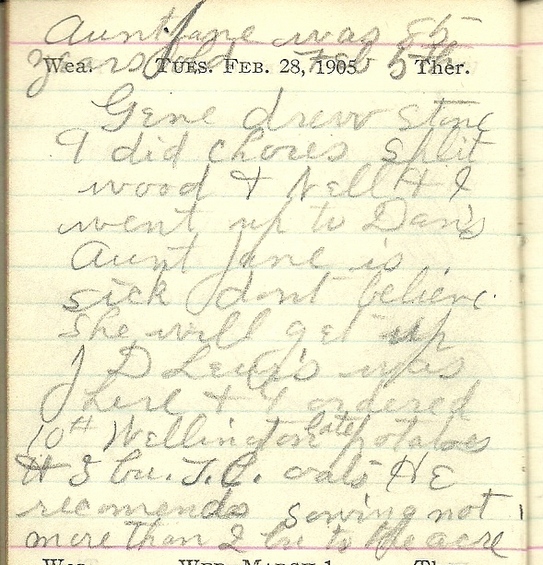 Aunt Jane was 85
years old Feb 5th
Wea. TUES. FEB. 28, 1905 Ther.
Gene drew stone
I did chores split
wood + Nell + I
went up to Dan's
Aunt Jane is
sick dont believe
she will get up
J D Lewis was
here + I ordered
10 # Wellington late potatoes
+ 3 bu. J.C. oats HE
recomends sowing not
more than 2 bu to the acre
Wea. WED. MARCH 1 Ther.